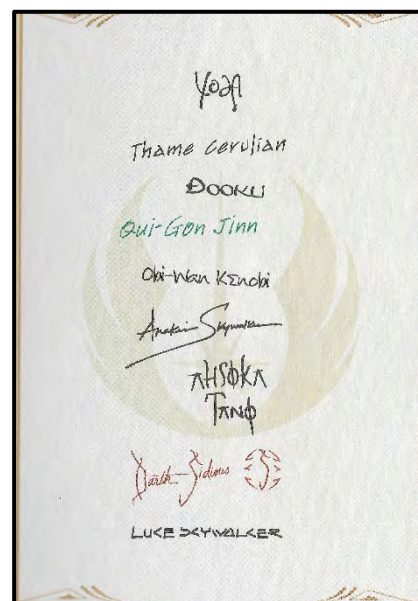 Yoda
Thame Cerulian
Dooku
Qui-Gon Jinn
Obi-Wan Kenobi
Anakin Skywalker
AHSOKA
TANO
Darth Sidious
LUKE SKYWALKER